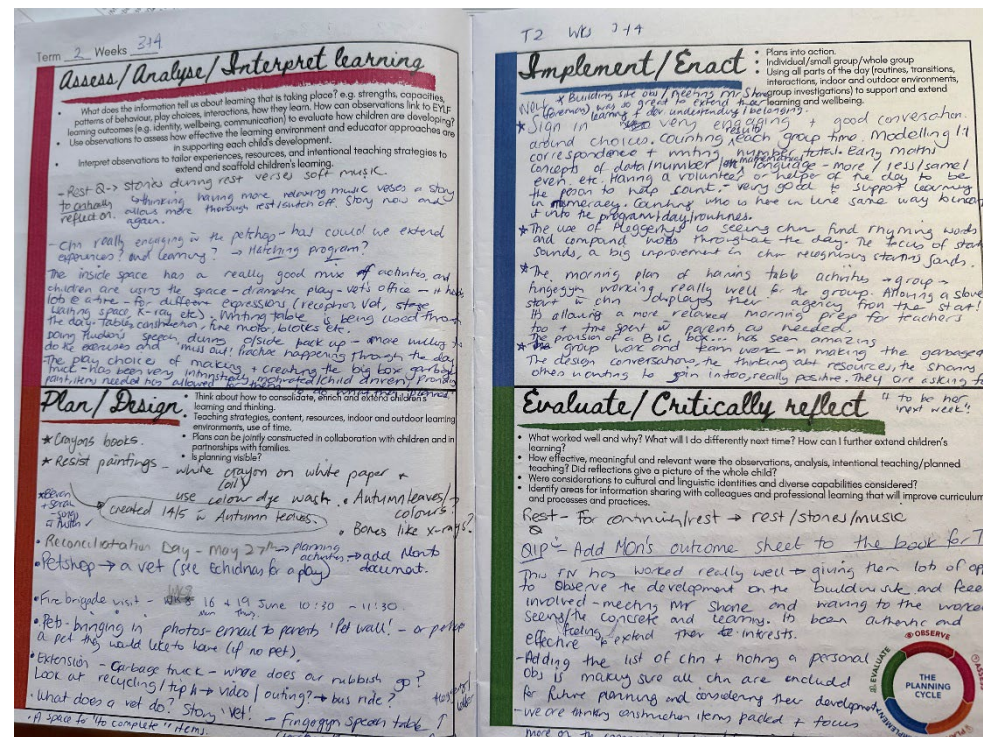 Term 2 Weeks 3+4
Assess/Analyse/Interpret learning
What does the information tell us about learning that is taking place? e.g. strengths, capacities,
patterns of behaviour, play choices, interactions, how they learn. How can observations link to EYLF
learning outcomes (e.g. identity, wellbeing, communication) to evaluate how children are developing?
• Use observations to assess how effective the learning environment and educator approaches are
in supporting each child's development.
• Interpret observations to tailor experiences, resources, and intentional teaching strategies to
extend and scaffold children's learning.
- Rest Q → stories during rest verses soft music.
to critically → thinking having more relaxing music verses a story
reflect on. allows more thorough rest/switch off. Story now and
again.
- Chn really engaging in the petshop - how could we extend
experiences? and learning? → Hatching program?
The inside space has a really good mix of activities, and
children are using the space - dramatic play - vet's office - it has
lots @ a time - for different expressions (reception, vet,
waiting space, X-ray etc). Writing table is being used through
the day. Tables, construction, fine motor, blocks etc.
Doing speech, during o/side pack up - more willing to
do exercises and miss out! practice happening through the day
The play choice of making + creating the big box garbage
truck - has been very intrinsically motivated/child driven. Providing
paint, items needed has allowed
Plan/Design
• Think about how to consolidate, enrich and extend children's
learning and thinking.
• Teaching strategies, content, resources, indoor and outdoor learning
environments, use of time.
• Plans can be jointly constructed in collaboration with children and in
partnerships with families.
• Is planning visible?
* Crayons books.
* Resist paintings - white crayon on white paper +
(oil)
use colour dye wash
• Autumn leaves/?
colours?
created 14/5 in Autumn leaves.
• Bones like x-rays?
• Reconciliation Day - May 27th → planning
activities → add Mon to
document.
• Petshop → a vet (see Echidnas for a play)
• Fire brigade visit - 16 + 19 June 10:30 - 11:30.
• Pets - bringing in photos - email to parents 'Pet wall' - or
a pet they would like to have (if no pet).
• Extension - Garbage truck - where does our rubbish go?
Look at recycling/tip → video/outing? → bus ride?
• What does a vet do? Story 'Vet'. - Fingogym speech table
• A space to "to complete" items.
T2 Wks 3+4
Implement/Enact
• Plans into action.
• Individual/small group/whole group
• Using all parts of the day (routines, transitions,
interactions, indoor and outdoor environments,
group investigations) to support and extend
learning and wellbeing.
* Building site obs/meeting Mr Shane
offering was so great to extend their
learning + dev understanding/belonging.
* Sign in very engaging + good conversation
around choices. Counting results each group time. Modelling 1:1
correspondence + writing number total. Early maths
concepts of data/number/mathematical language - more/less/same/
even. etc. Having a volunteer or helper of the day to be
the person to help count. - very good to support learning
in numeracy. Counting who is here in line same way
it into the program/day/routines.
* The use of Heggertys is seeing chn find rhyming words
and compound words throughout the day. The focus of start
sounds, a big improvement in chn recognising starting sounds.
* The morning plan of having table activities → group →
fungogym working really well for the group. Allowing a slower
start in chn /displays their agency from the start!
Its allowing a more relaxed morning prep for teachers
too + time spent w parents as needed.
The provision of a BIG box... has seen amazing
* group work and team work - in making the garbage
The design conversations, the thinking abt resources, the sharing
others wanting to join in too, really positive. They are asking to
"to be her
next week".
Evaluate/Critically reflect
• What worked well and why? What will I do differently next time? How can I further extend children's
learning?
• How effective, meaningful and relevant were the observations, analysis, intentional teaching/planned
teaching? Did reflections give a picture of the whole child?
• Were considerations to cultural and linguistic identities and diverse capabilities considered?
• Identify areas for information sharing with colleagues and professional learning that will improve curriculum
and processes and practices.
Rest - For continuity/rest → rest/stories/music
Q
QIP - Add Mon's outcome sheet to the book for T
This FN has worked really well → giving them lots of op
to observe the development on the building site and feel
involved - meeting Mr Shane and waving to the worke
seeing the concrete and learning. Its been authentic and
effective feeling + extend their interests.
- Adding the list of chn + noting a personal
obs is making sure all chn are included
for future planning and considering their development
- we are thinking construction items packed + focus
more on the
OBSERVE
ASSESS
IMPLEMENT
EVALUATE
THE
PLANNING
CYCLE